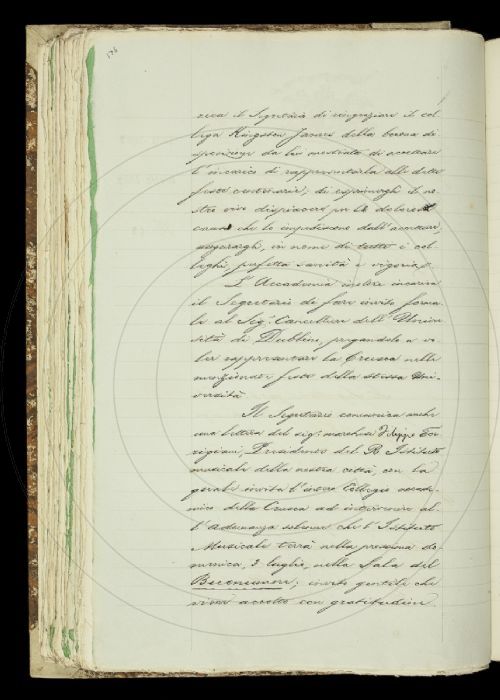 rica il Segretario di ringraziare il col-
lega Kingston James della buona di-
sposizione da lui mostrata di accettare
l'incarico di rappresentarla alle dette
feste centenarie, di esprimergli il no-
stro vivo dispiacere per le dolorose
cause che lo impediscono dall'accettare,
augurargli, in nome di tutti i col-
leghi, perfetta sanità e vigoria.
L'Accademia inoltre incarica
il Segretario di fare invito forma-
le al Sig.r Cancelliere dell'Univer-
sità di Dublino, pregandolo a vo-
ler rappresentare la Crusca nelle
menzionate feste della stessa Uni-
versità
Il Segretario comunica anche
una lettera del sig.r marchese Filippo Tor-
rigiani, Presidente del R. Istituto
musicale della nostra città, con la
quale invita l'intero Collegio accade-
mico della Crusca ad intervenire al-
l'Adunanza solenne che l'Istituto
Musicale terrà nella prossima do-
menica, 3 luglio, nella Sala del
Buonumore; invito gentile che
viene accolto con gratitudine.